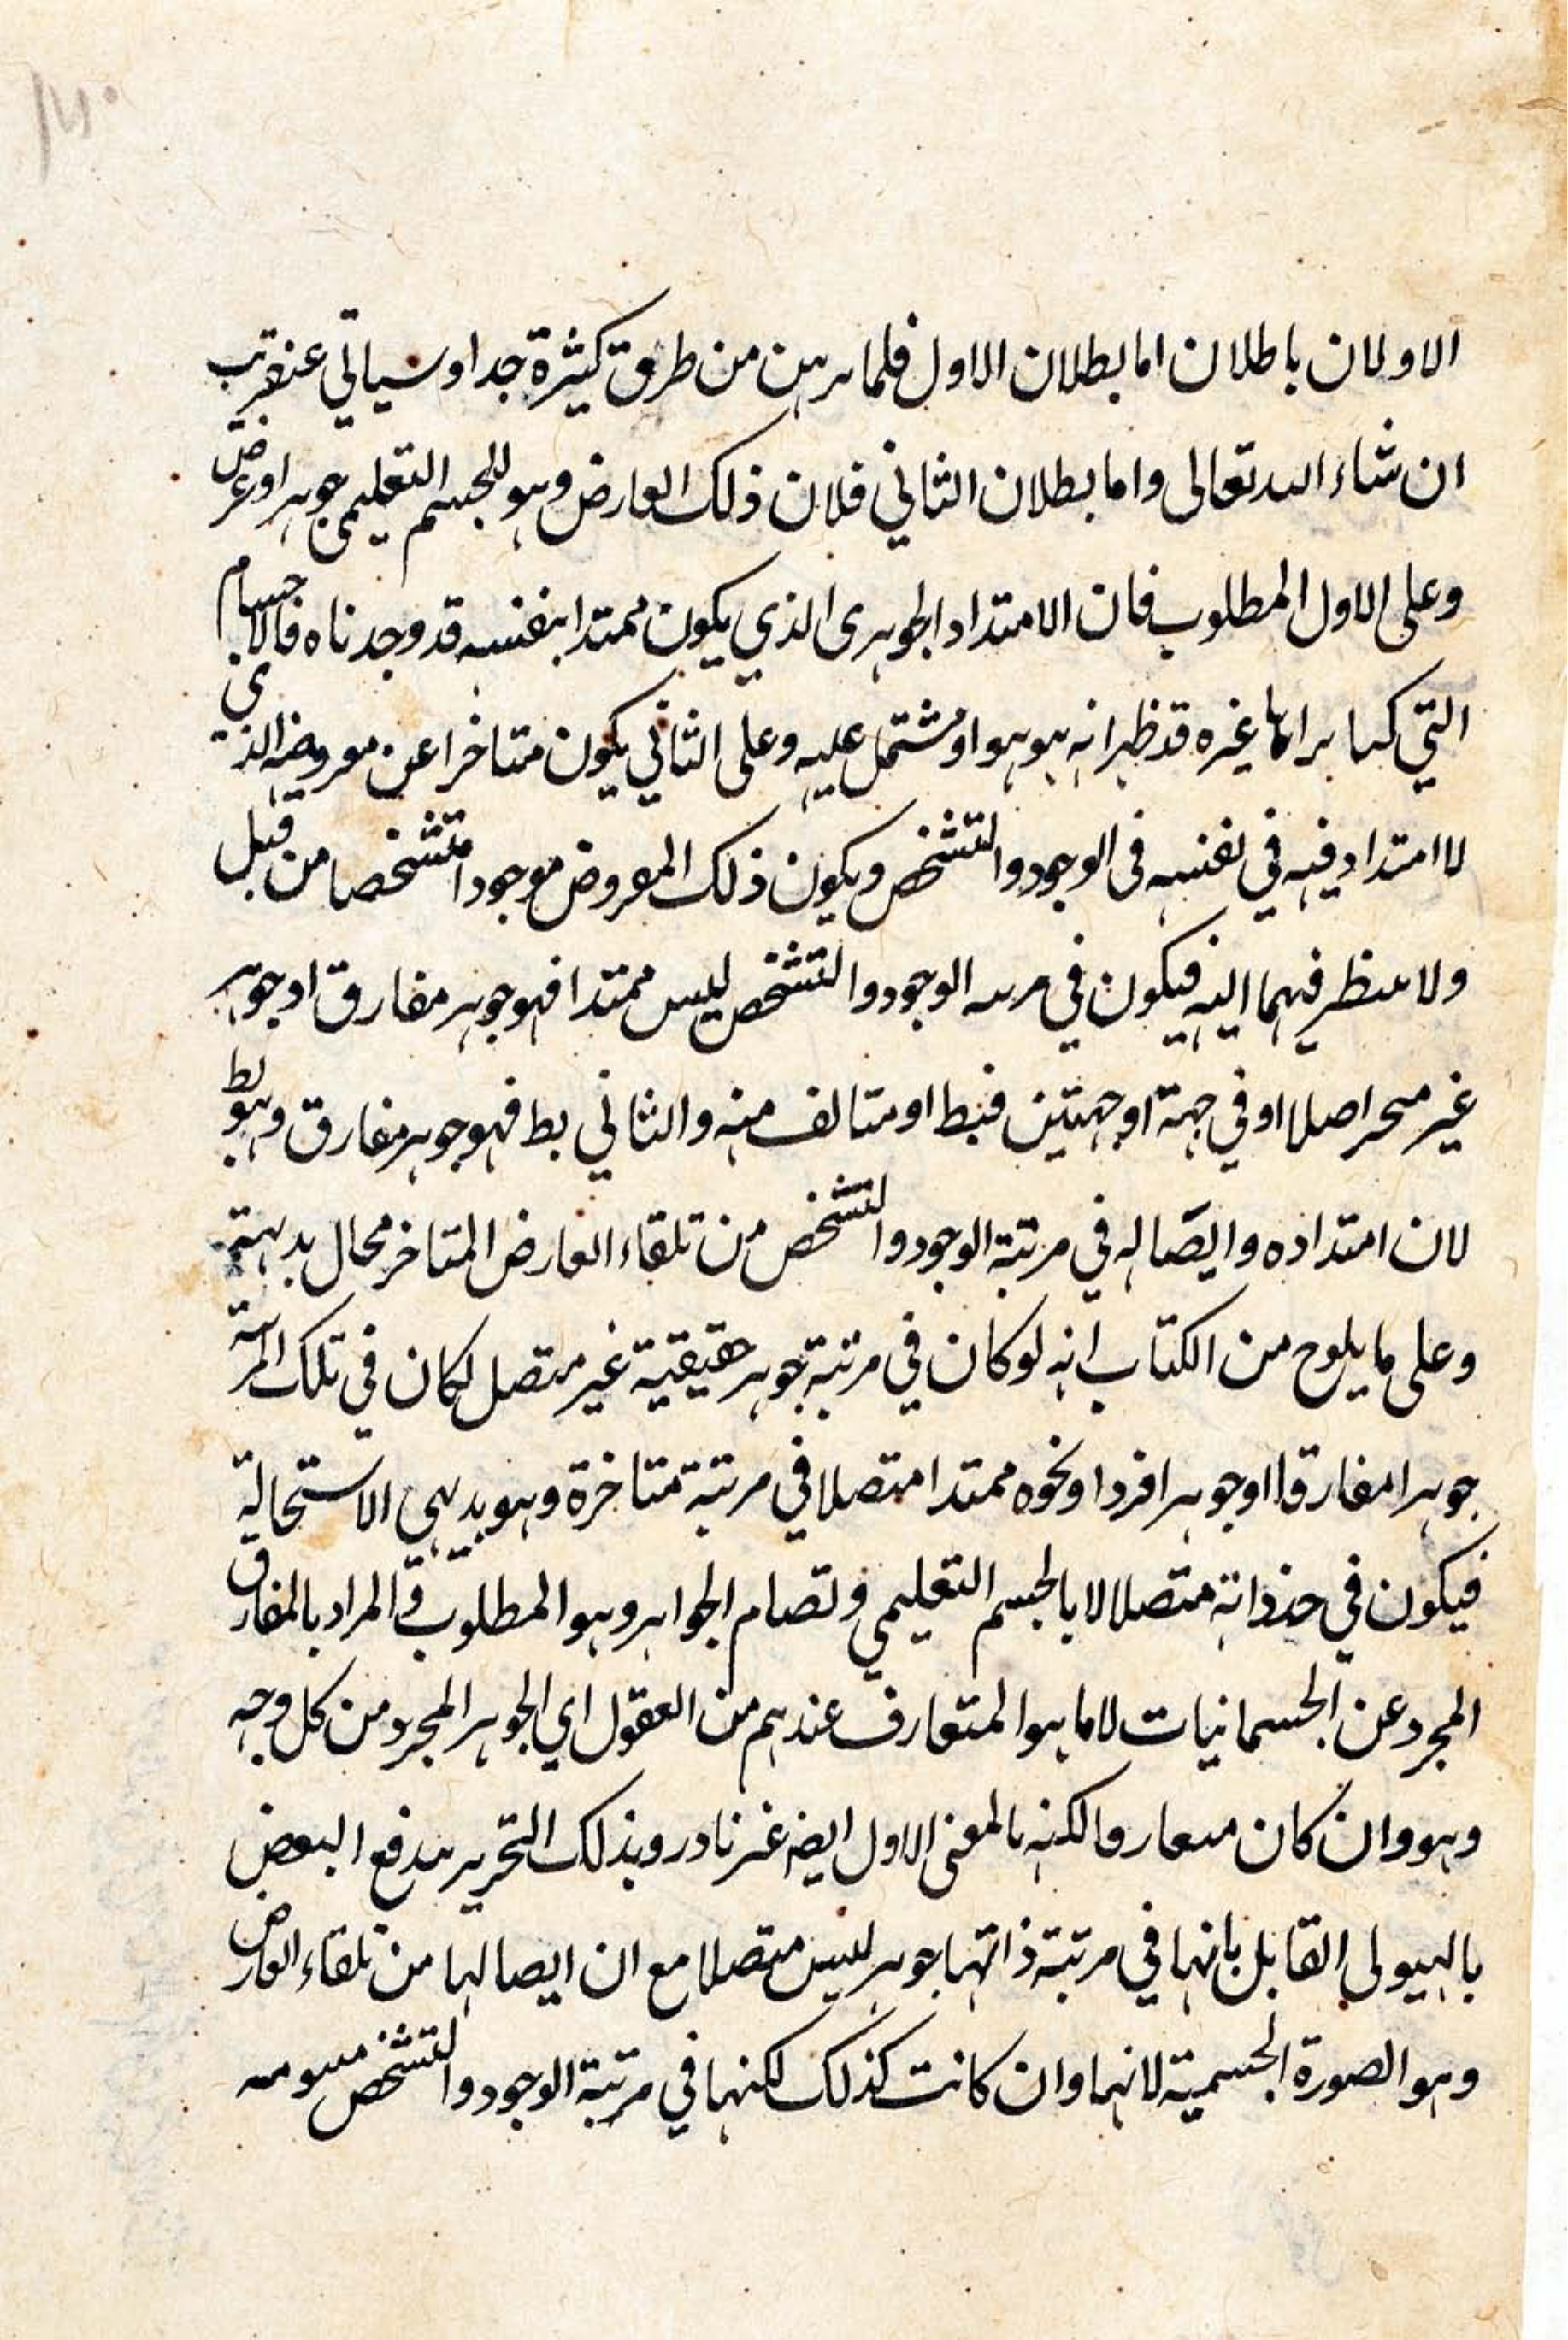 الاولان باطلان اما بطلان الاول فلما برهن من طرق كثيرة جدا وسياتي عنقريب
ان شاء الله تعالى واما بطلان الثاني فلان ذلك العارض وهو الجسم التعليمي جوهر او عرض
وعلى الاول المطلوب فان الامتداد الجوهرى الذي يكون ممتدا بنفسه قد وجدناه فالاجسام
التي غيره قد ظهر انه هو هو او مشتمل عليه وعلى الثاني يكون متاخرا عن معروضه الذى
لا امتداد فيه في نفسه فى الوجود والتشخص ويكون ذلك المعروض موجودا متشخصا من قبل
ولا ينظر فيهما اليه فيكون في مرتبة الوجود والتشخص ليس ممتدا فهو جوهر مفارق او جوهر
غير متحيز اصلا او في جهة او جهتين فبط او متالف منه والثاني بط فهو جوهر مفارق وهو بط
لان امتداده وايصاله في مرتبة الوجود والتشخص من تلقاء العارض المتاخر محال بديهة
وعلى ما يلوح من الكتاب انه لو كان في مرتبة جوهر حقيقية غير متصل لكان في تلك المرتبة
جوهرا مفارقا او جوهرا فردا ونحوه ممتدا متصلا في مرتبة متاخرة وهو بديهي الاستحالة
فيكون في حد ذاته متصلا لا بالجسم التعليمي وتصام الجواهر وهو المطلوب المراد بالمفارق
المجرد عن الجسمانيات لا ما هو المتعارف عندهم من العقول اي الجوهر المجرد من كل وجه
وهو وان كان متعارفا لكنه بالمعنى الاول ايضه غير نادر وبذلك التحرير يندفع البعض
بالهيولى القابل بانها في مرتبة ذاتها جوهر ليس متصلا مع ان ايصالها من تلقاء العارض
وهو الصورة الجسمية لانها وان كانت كذلك لكنها في مرتبة الوجود والتشخص